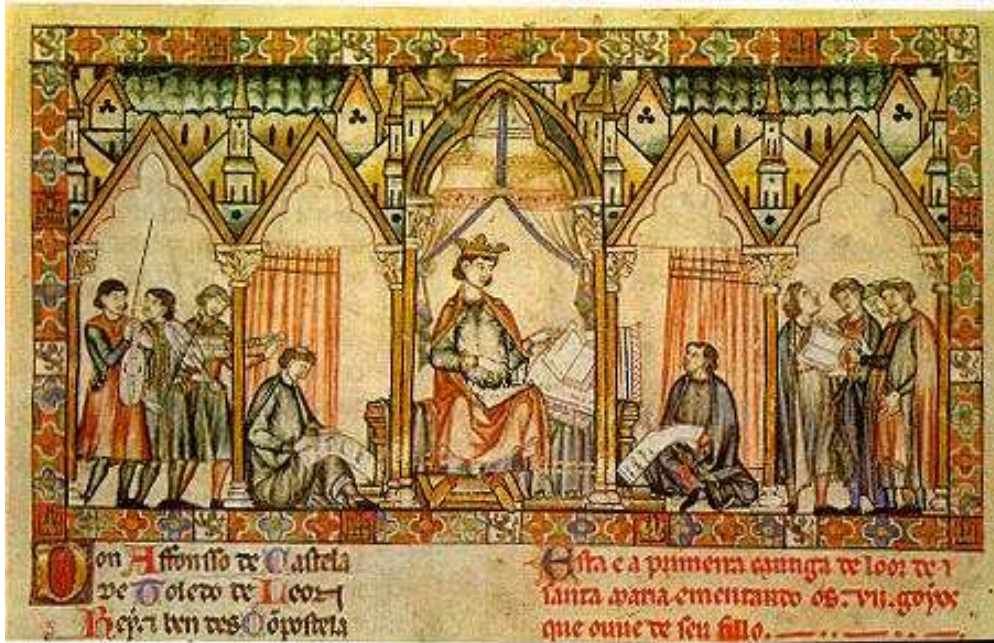 Don Affonsso de Castela
de Toledo de Leon
Rey. τ ben des Cõpostela
Esta e a primeira cantiga de loor de
santa maria ementando os. vii. goyos
que ouve de seu fillo.